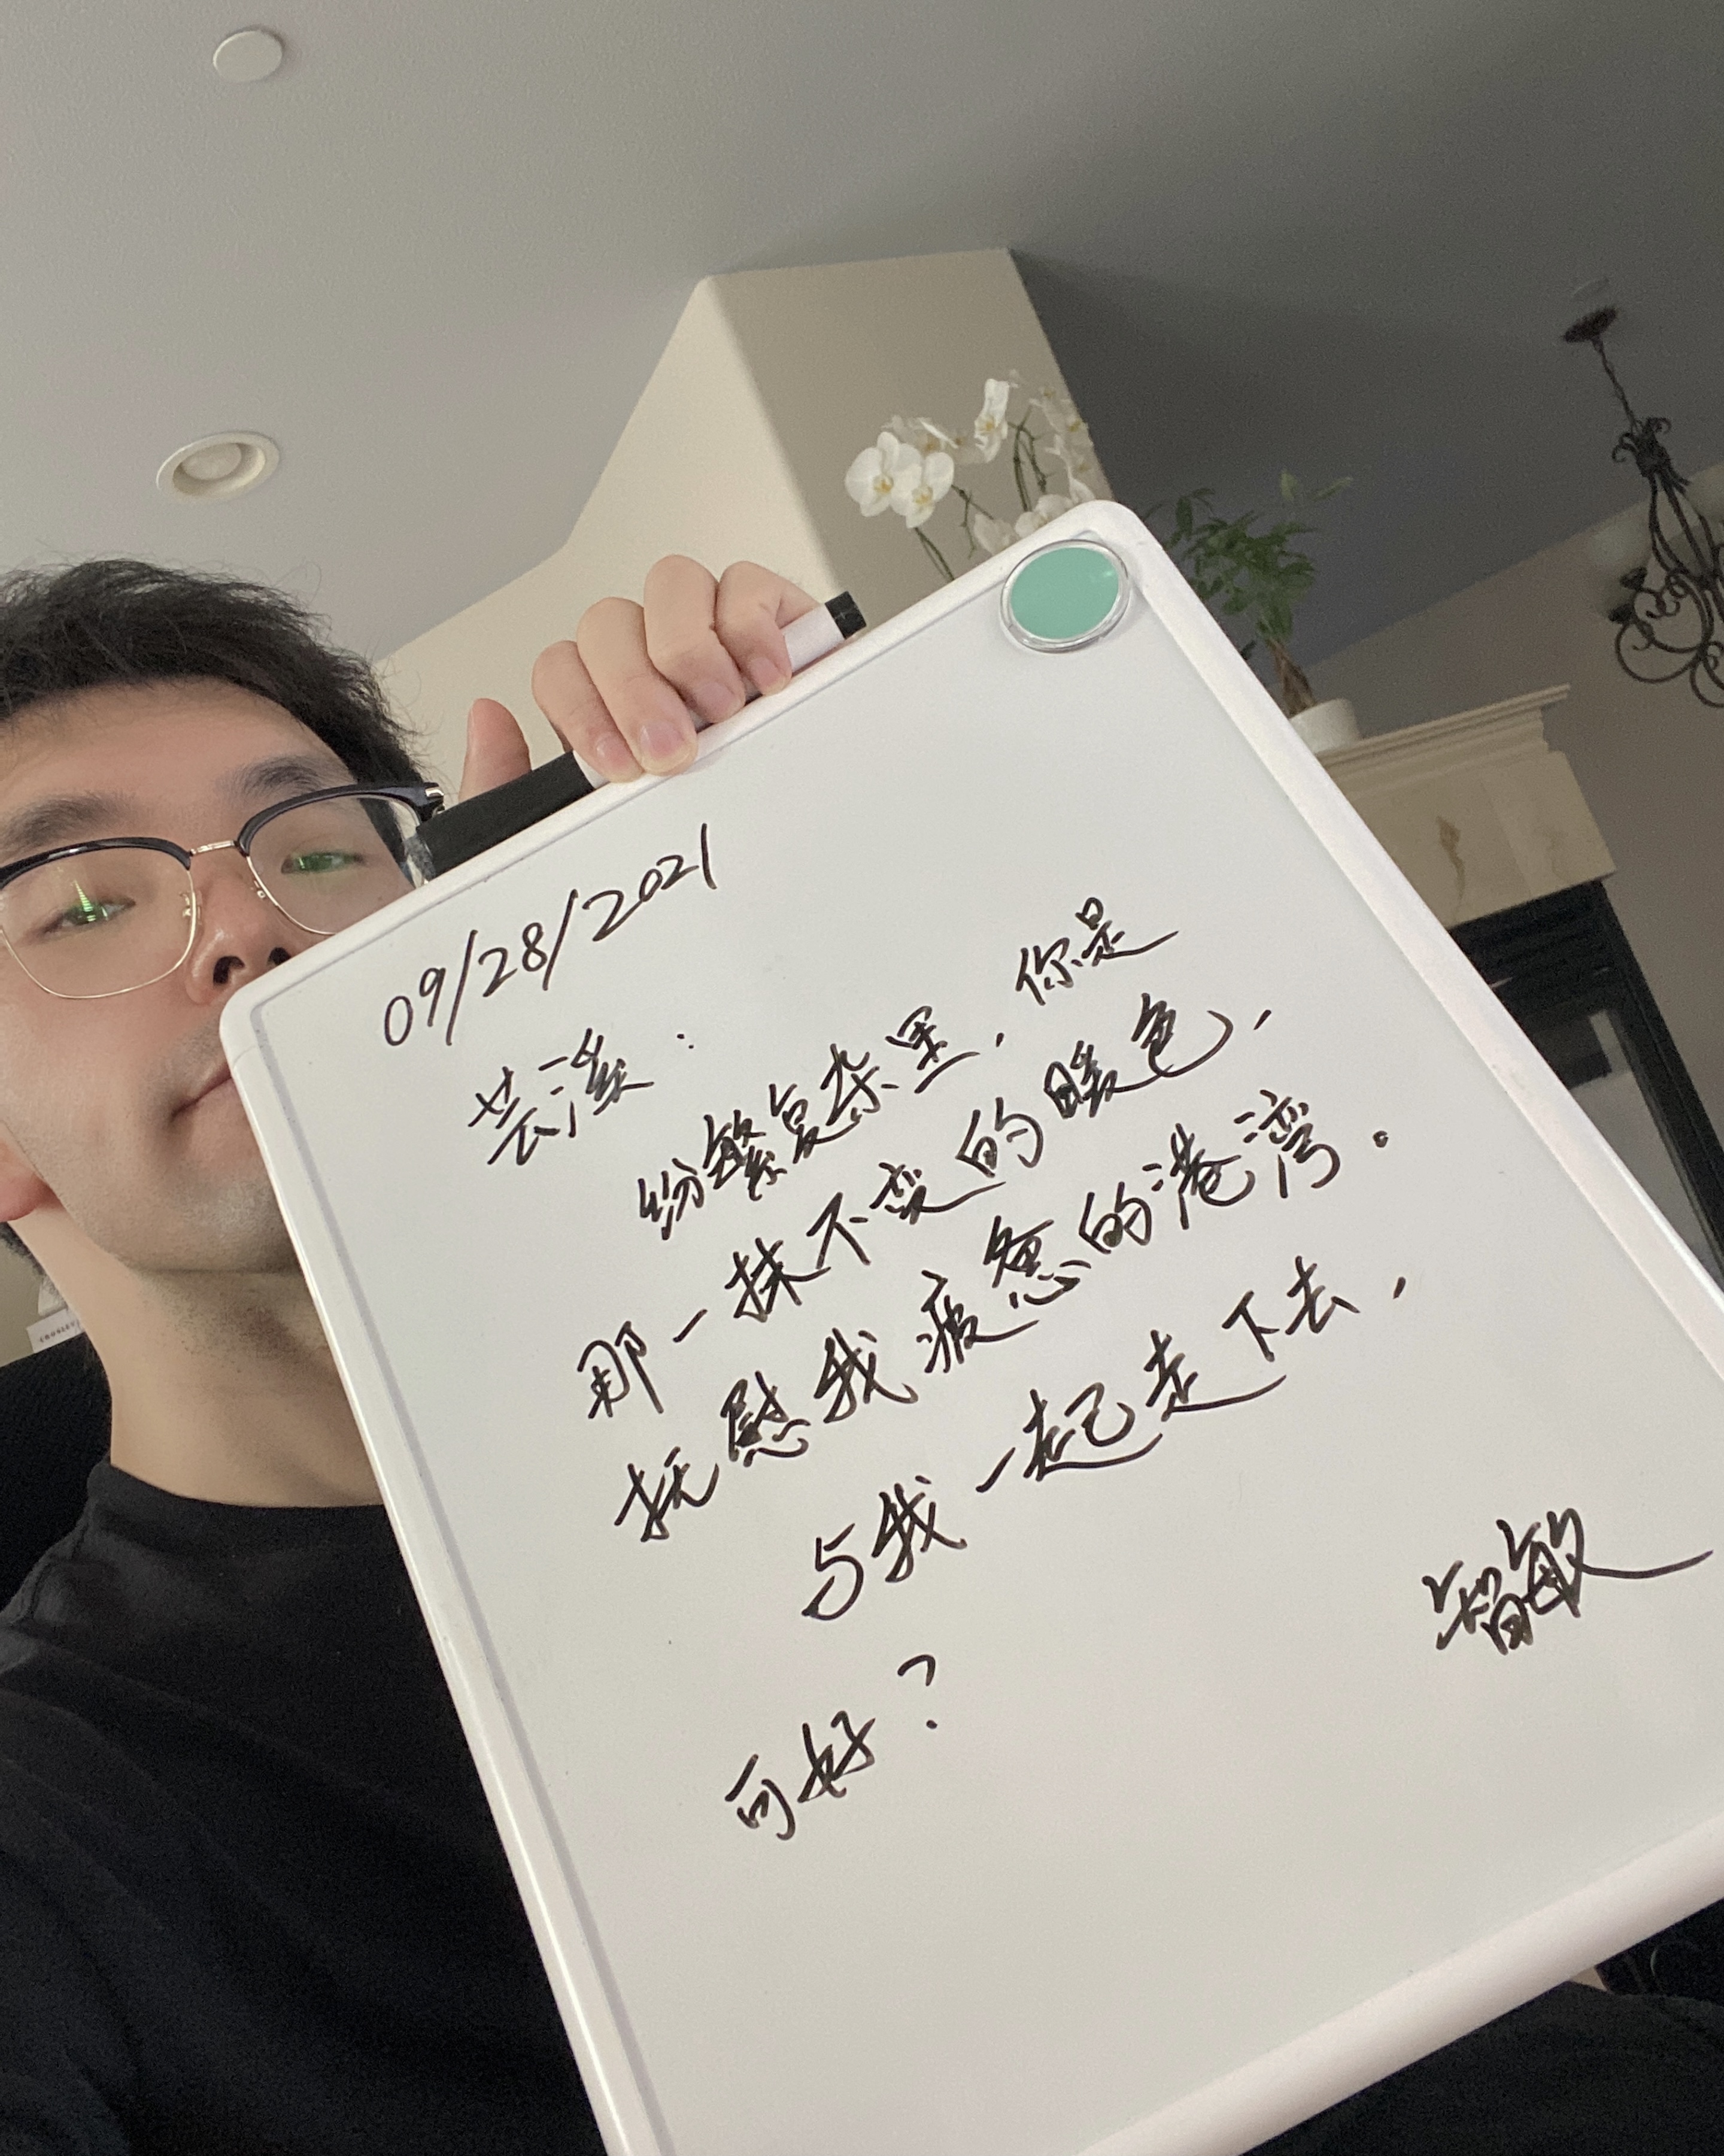 09/28/2021
芸溪：
纷繁复杂里，你是
那一抹不变的暖色，
抚慰我疲惫的港湾。
与我一起走下去，
可好？
智敏